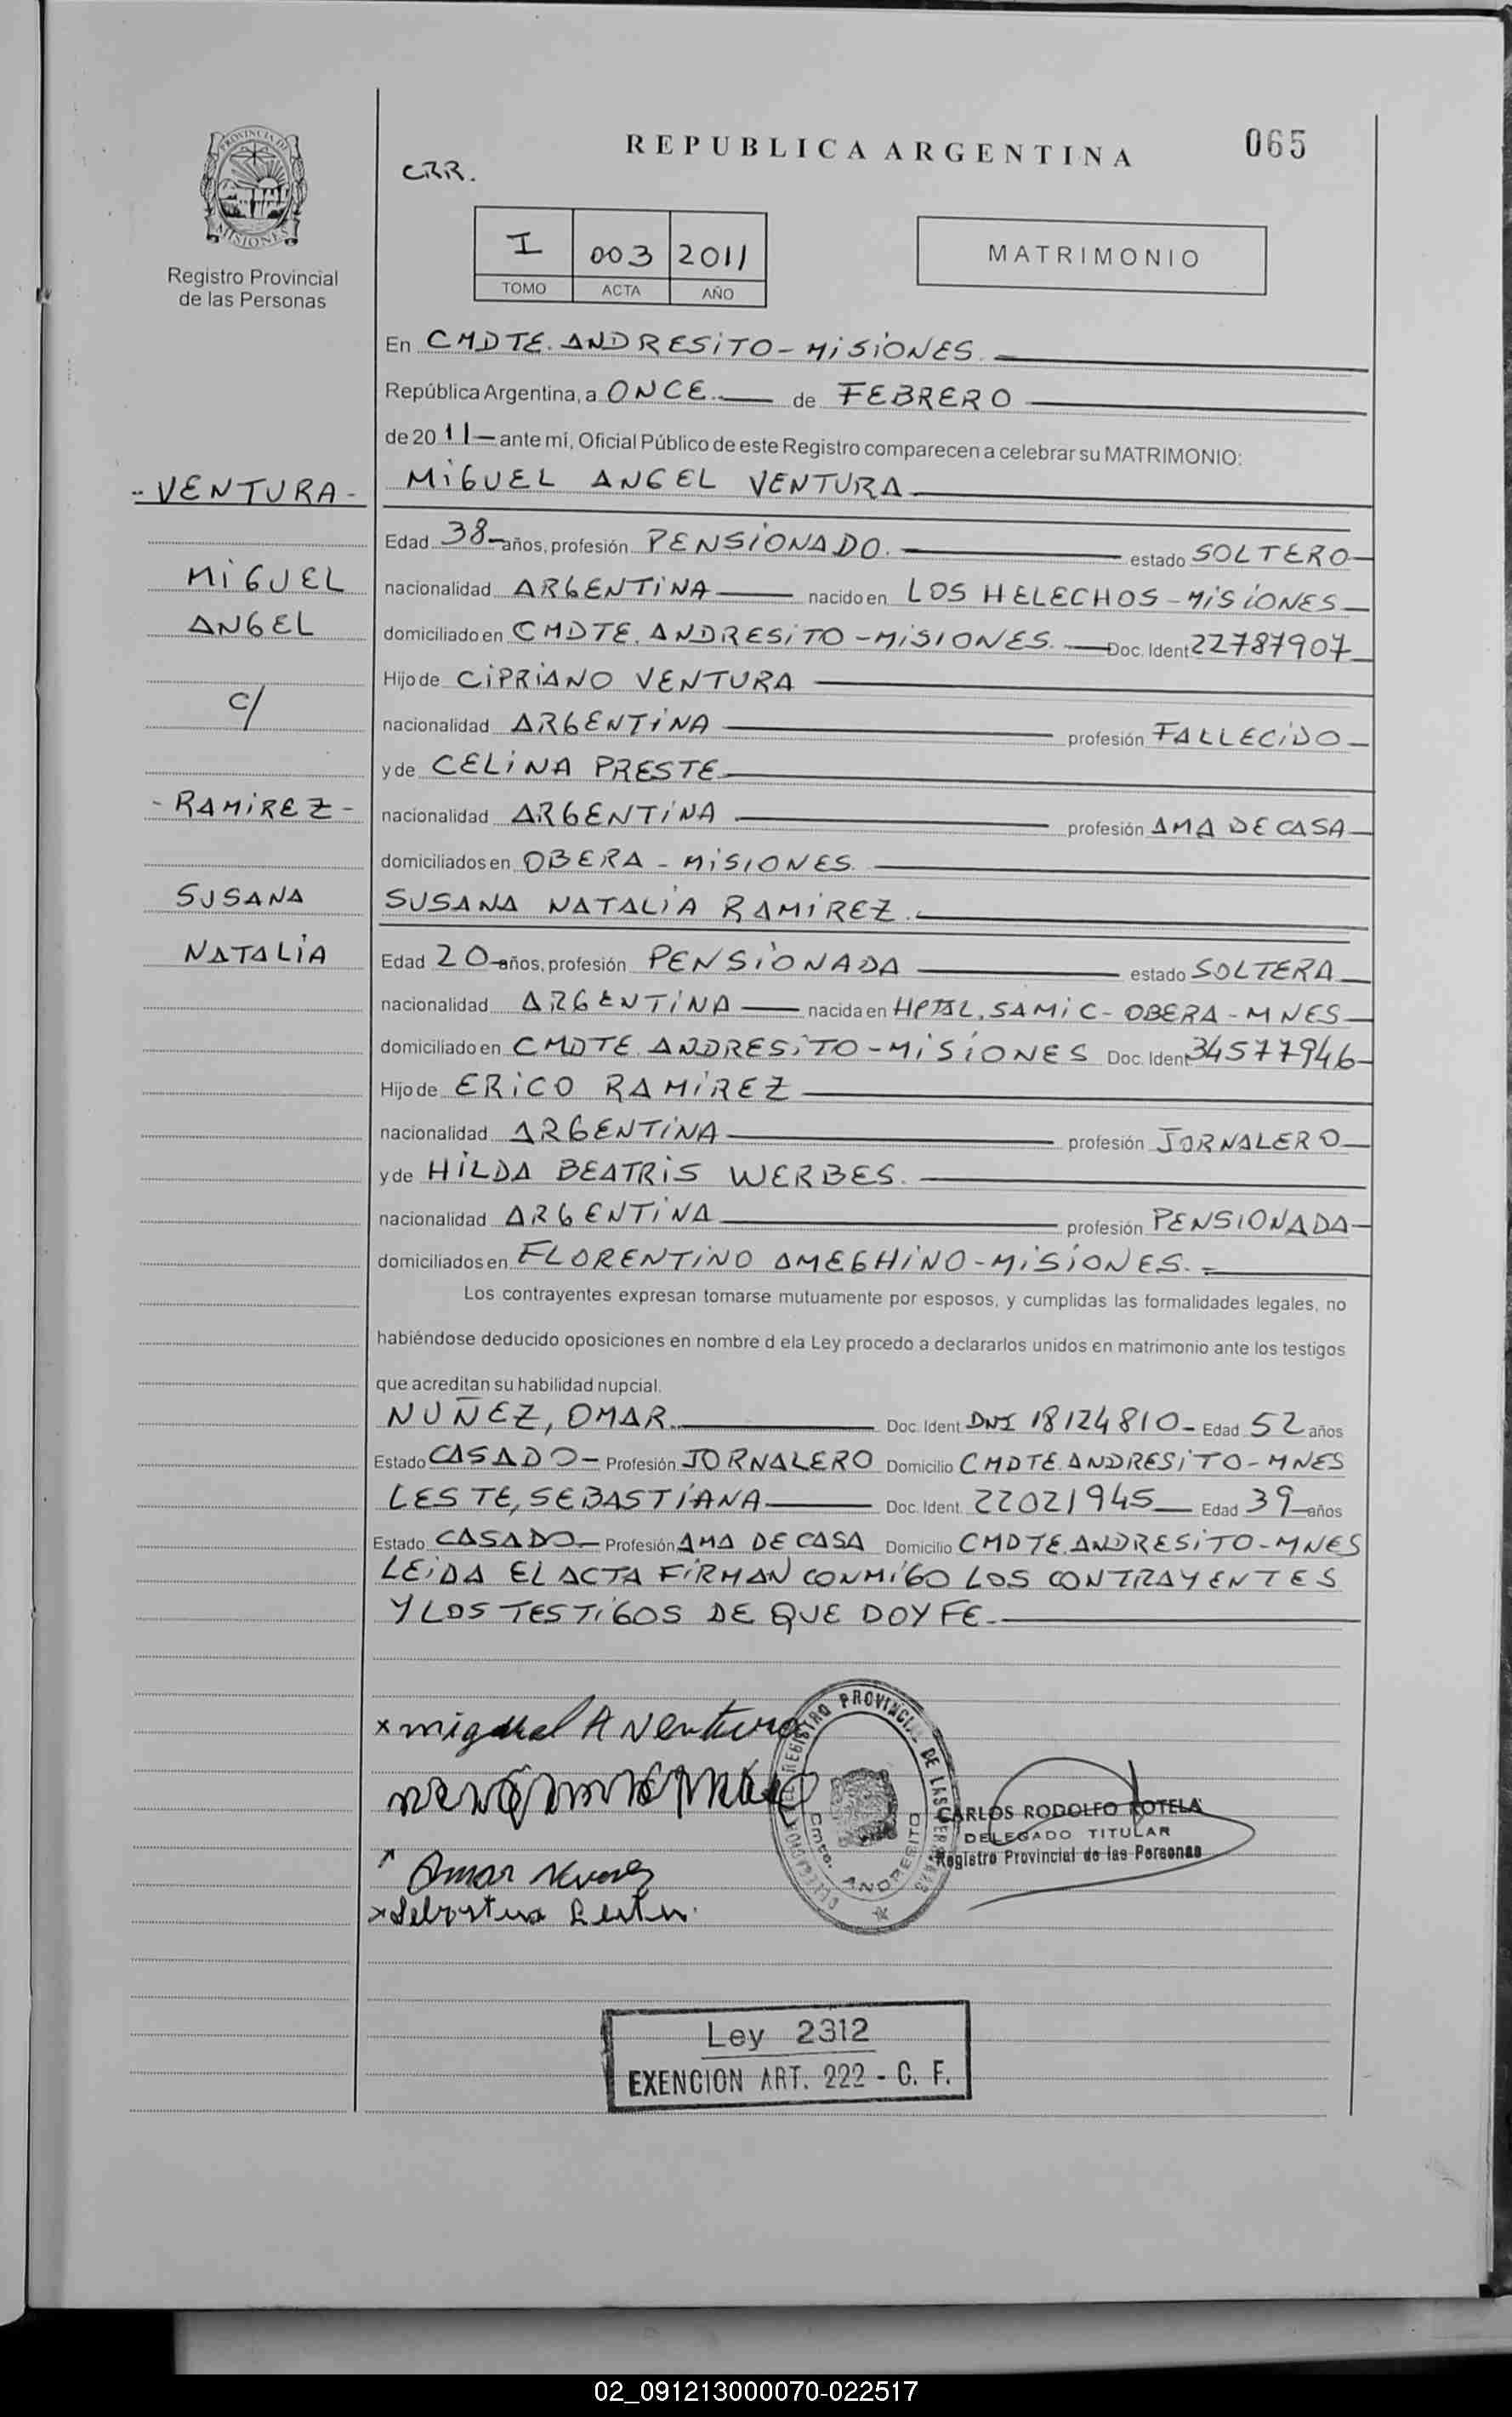 PROVINCIA DE
MISIONES
Registro Provincial
de las Personas
REPUBLICA ARGENTINA
065
CRR.
I 003 2011
TOMO ACTA AÑO
MATRIMONIO
En CMDTE. ANDRESiTO - MiSiONES.
República Argentina, a ONCE. de FEBRERO
de 20 11 ante mí, Oficial Público de este Registro comparecen a celebrar su MATRIMONIO:
- VENTURA -
MiGUEL ANGEL VENTURA
Edad 38 años, profesión PENSiONADO. estado SOLTERO
MiGUEL
nacionalidad ARGENTiNA nacido en LOS HELECHOS - MiSiONES
ANGEL
domiciliado en CMDTE. ANDRESiTO - MiSIONES. Doc. Ident 22787907
Hijo de CiPRiANO VENTURA
c/
nacionalidad ARGENTiNA profesión FALLECiDO
y de CELiNA PRESTE
- RAMiREZ -
nacionalidad ARGENTiNA profesión AMA DE CASA
domiciliados en OBERA - MiSIONES.
SUSANA
SUSANA NATALiA RAMiREZ.
NATALiA
Edad 20 años, profesión PENSiONADA estado SOLTERA
nacionalidad ARGENTiNA nacida en HPTAL. SAMiC - OBERA - MNES
domiciliado en CMDTE. ANDRESiTO - MiSiONES Doc. Ident 34577946
Hijo de ERiCO RAMiREZ
nacionalidad ARGENTiNA profesión JORNALERO
y de HiLDA BEATRiS WERBES.
nacionalidad ARGENTiNA profesión PENSIONADA
domiciliados en FLORENTiNO AMEGHiNO - MiSiONES.
Los contrayentes expresan tomarse mutuamente por esposos, y cumplidas las formalidades legales, no
habiéndose deducido oposiciones en nombre d ela Ley procedo a declararlos unidos en matrimonio ante los testigos
que acreditan su habilidad nupcial.
NUÑEZ, OMAR. Doc. Ident. DNI 18124810 - Edad 52 años
Estado CASADO - Profesión JORNALERO Domicilio CMDTE. ANDRESiTO - MNES
LESTE, SEBASTiANA Doc. Ident. 22021945 Edad 39 años
Estado CASADO - Profesión AMA DE CASA Domicilio CMDTE. ANDRESiTO - MNES
LEiDA EL ACTA FiRMAN CONMiGO LOS CONTRAYENTES
Y LOS TESTiGOS DE QUE DOY FE.
x miguel A Ventura
REGISTRO PROVINCIAL DE LAS PERSONAS
Cmte. ANDRESITO
CARLOS RODOLFO ROTELA
DELEGADO TITULAR
Registro Provincial de las Personas
Omar
Ley 2312
EXENCION ART. 222 - C. F.
02_091213000070-022517